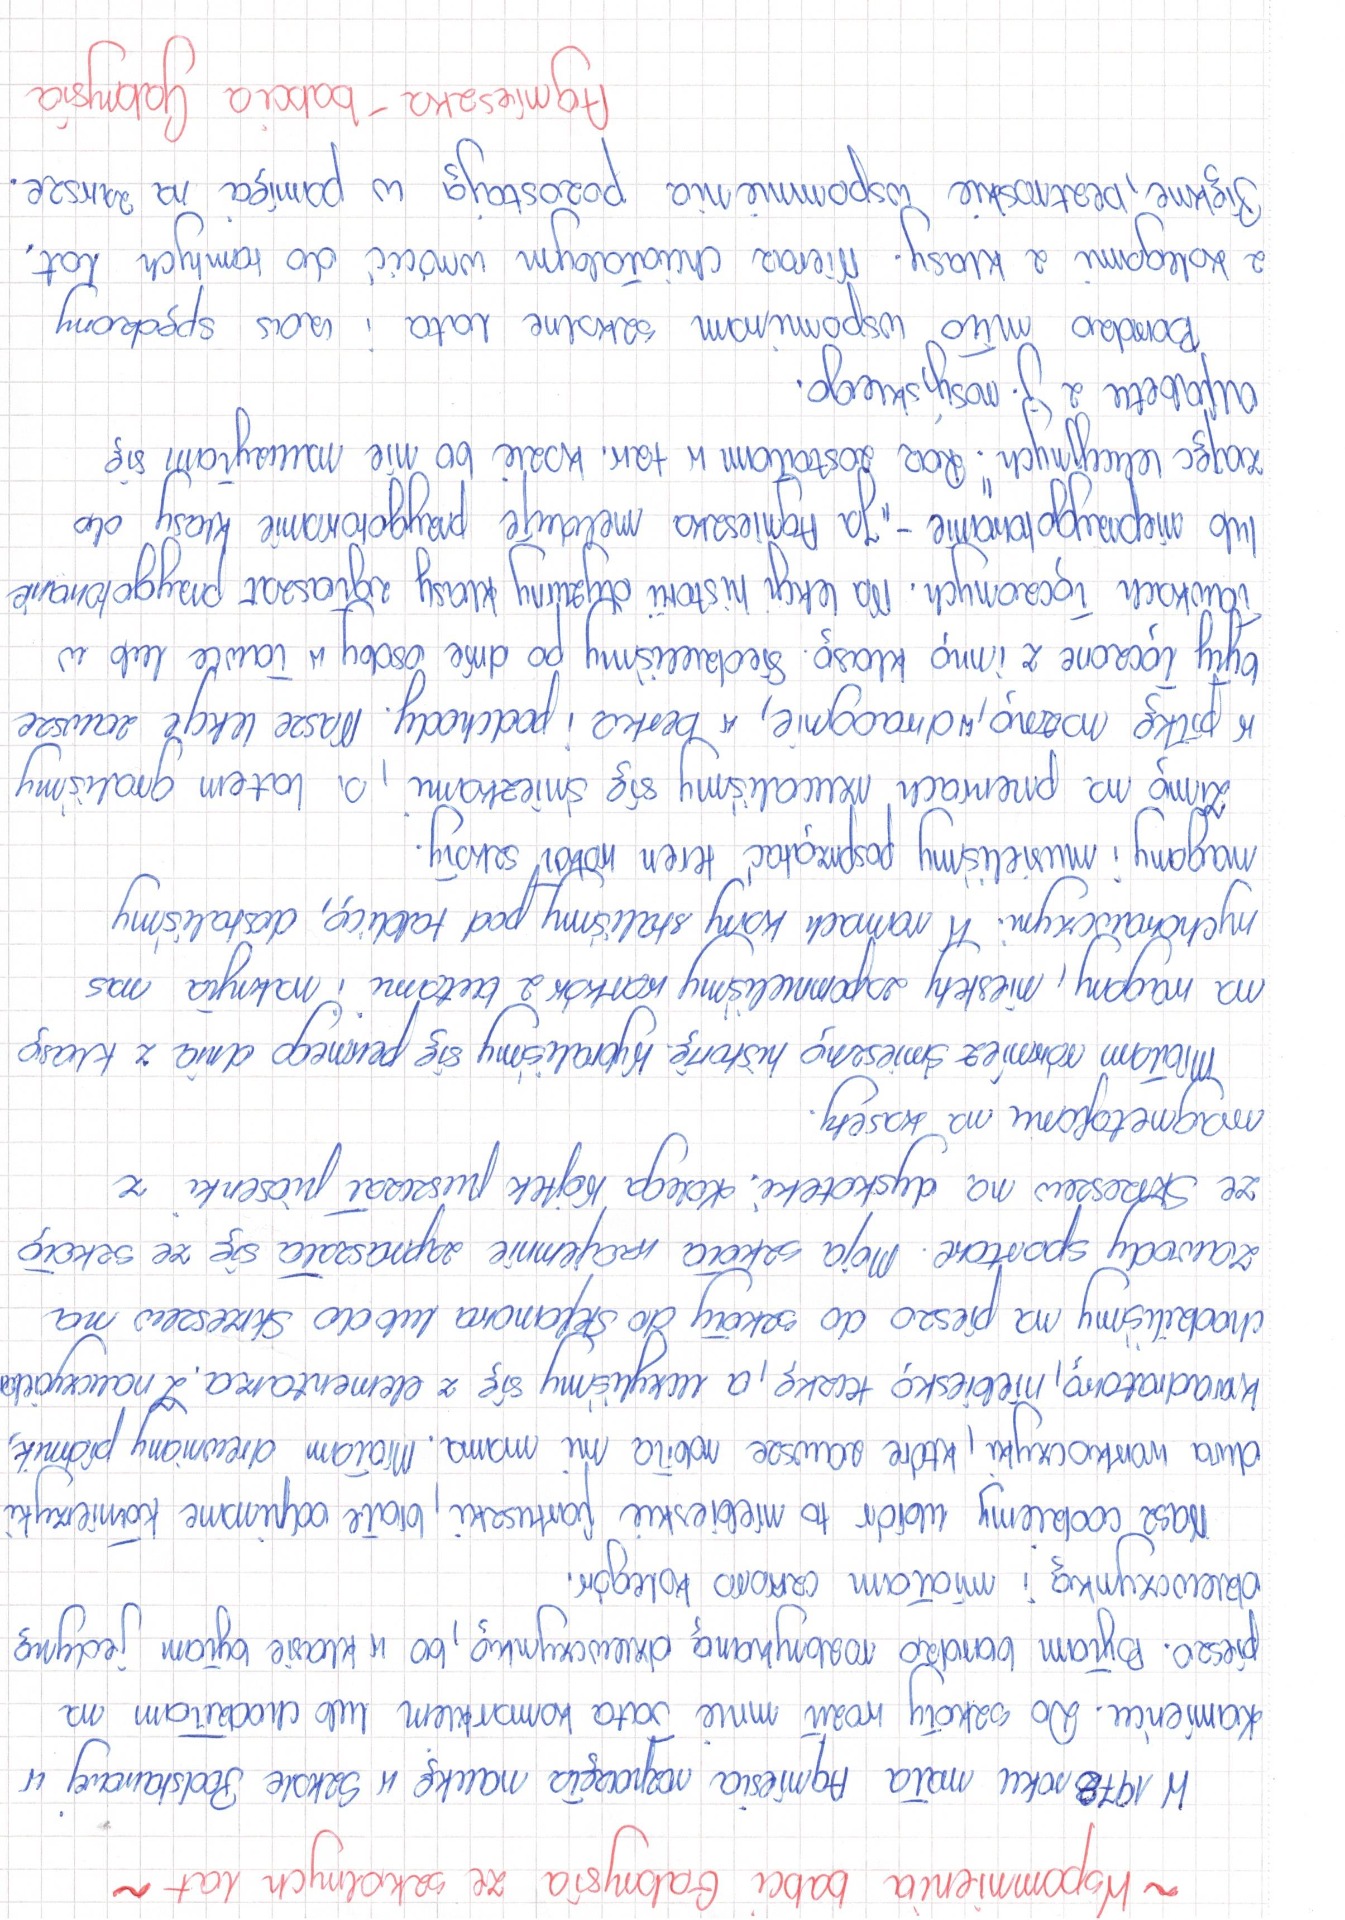 ~ Wspomnienia babci Gabrysia ze szkolnych lat ~
W 1978 roku mała Agniesia rozpoczęła naukę w Szkole Podstawowej w
Kamieńcu. Do szkoły woził mnie tata komarkiem lub chodziłam na
pieszo. Byłam bardzo rozbrykaną dziewczynką, bo w klasie byłam jedyną
dziewczynką i miałam czworo kolegów.
Nasz codzienny ubiór to niebieskie fartuszki, białe odpinane kołnierzyki
dwa warkoczyki, które zawsze robiła mi mama. Miałam drewniany piórnik,
kwadratową, niebieską teczkę, a uczyliśmy się z elementarza. Z nauczycielem
chodziliśmy na pieszo do szkoły do Stefanowa lub do Strzeszew na
zawody sportowe. Moja szkoła wzajemnie zapraszała się ze szkołą
ze Strzeszew na dyskoteki. Kolega Wojtek puszczał piosenki z
magnetofonu na kasety.
Miałam również śmieszną historię. Wybraliśmy się pewnego dnia z klasą
na wagary, niestety zapomnieliśmy kartkówek z butami i nakryła nas
wychowawczyni. W ramach kary staliśmy pod tablicą, dostaliśmy
nagany i musieliśmy posprzątać teren wokół szkoły.
Zimą na przerwach rzucaliśmy się śnieżkami, a latem graliśmy
w piłkę nożną, w dwa ognie, w berka i podchody. Nasze lekcje zawsze
były łączone z inną klasą. Siedzieliśmy po dwie osoby w ławce lub w
ławkach łączonych. Na lekcji historii dyżurny klasy zgłaszał przygotowanie
lub nieprzygotowanie - "Ja Agnieszka melduje przygotowanie klasy do
zajęć lekcyjnych". Raz zostałam w tzw. kozie bo nie nauczyłam się
alfabetu z j. rosyjskiego.
Bardzo miło wspominam szkolne lata i czas spędzony
z kolegami z klasy. Nieraz chciałabym wrócić do tamtych lat.
Piękne, beztroskie wspomnienia pozostają w pamięci na zawsze.
Agnieszka - babcia Gabrysia